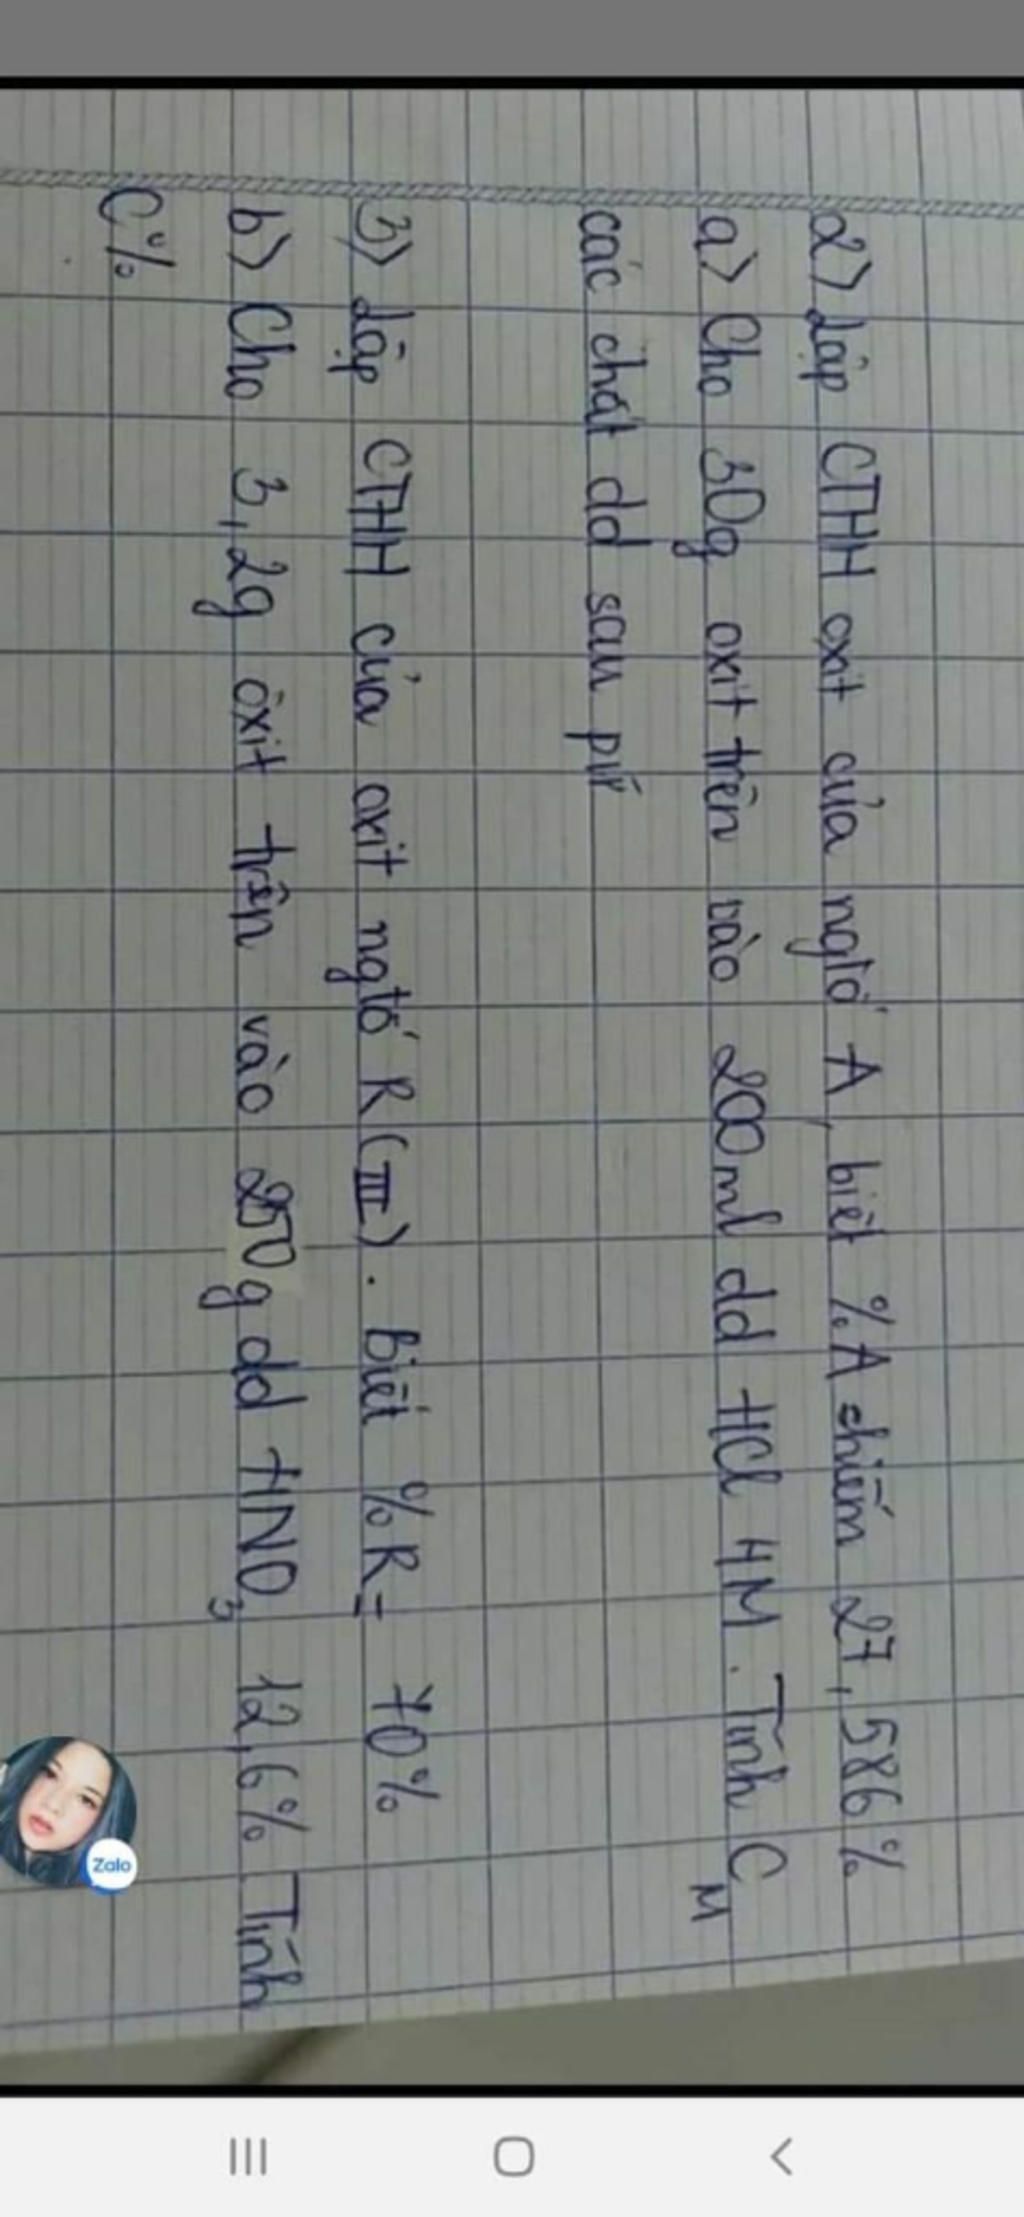 2> Lập CTHH oxit của ngtố A, biết %A chiếm 27,586%
a> Cho 30g oxit trên vào 200ml dd HCl 4M. Tính CM
các chất dd sau pứ
3> Lập CTHH của oxit ngtố R(III). Biết %R= 70%
b> Cho 3,2g oxit trên vào 250g dd HNO3 12,6% Tính
C%
Zalo